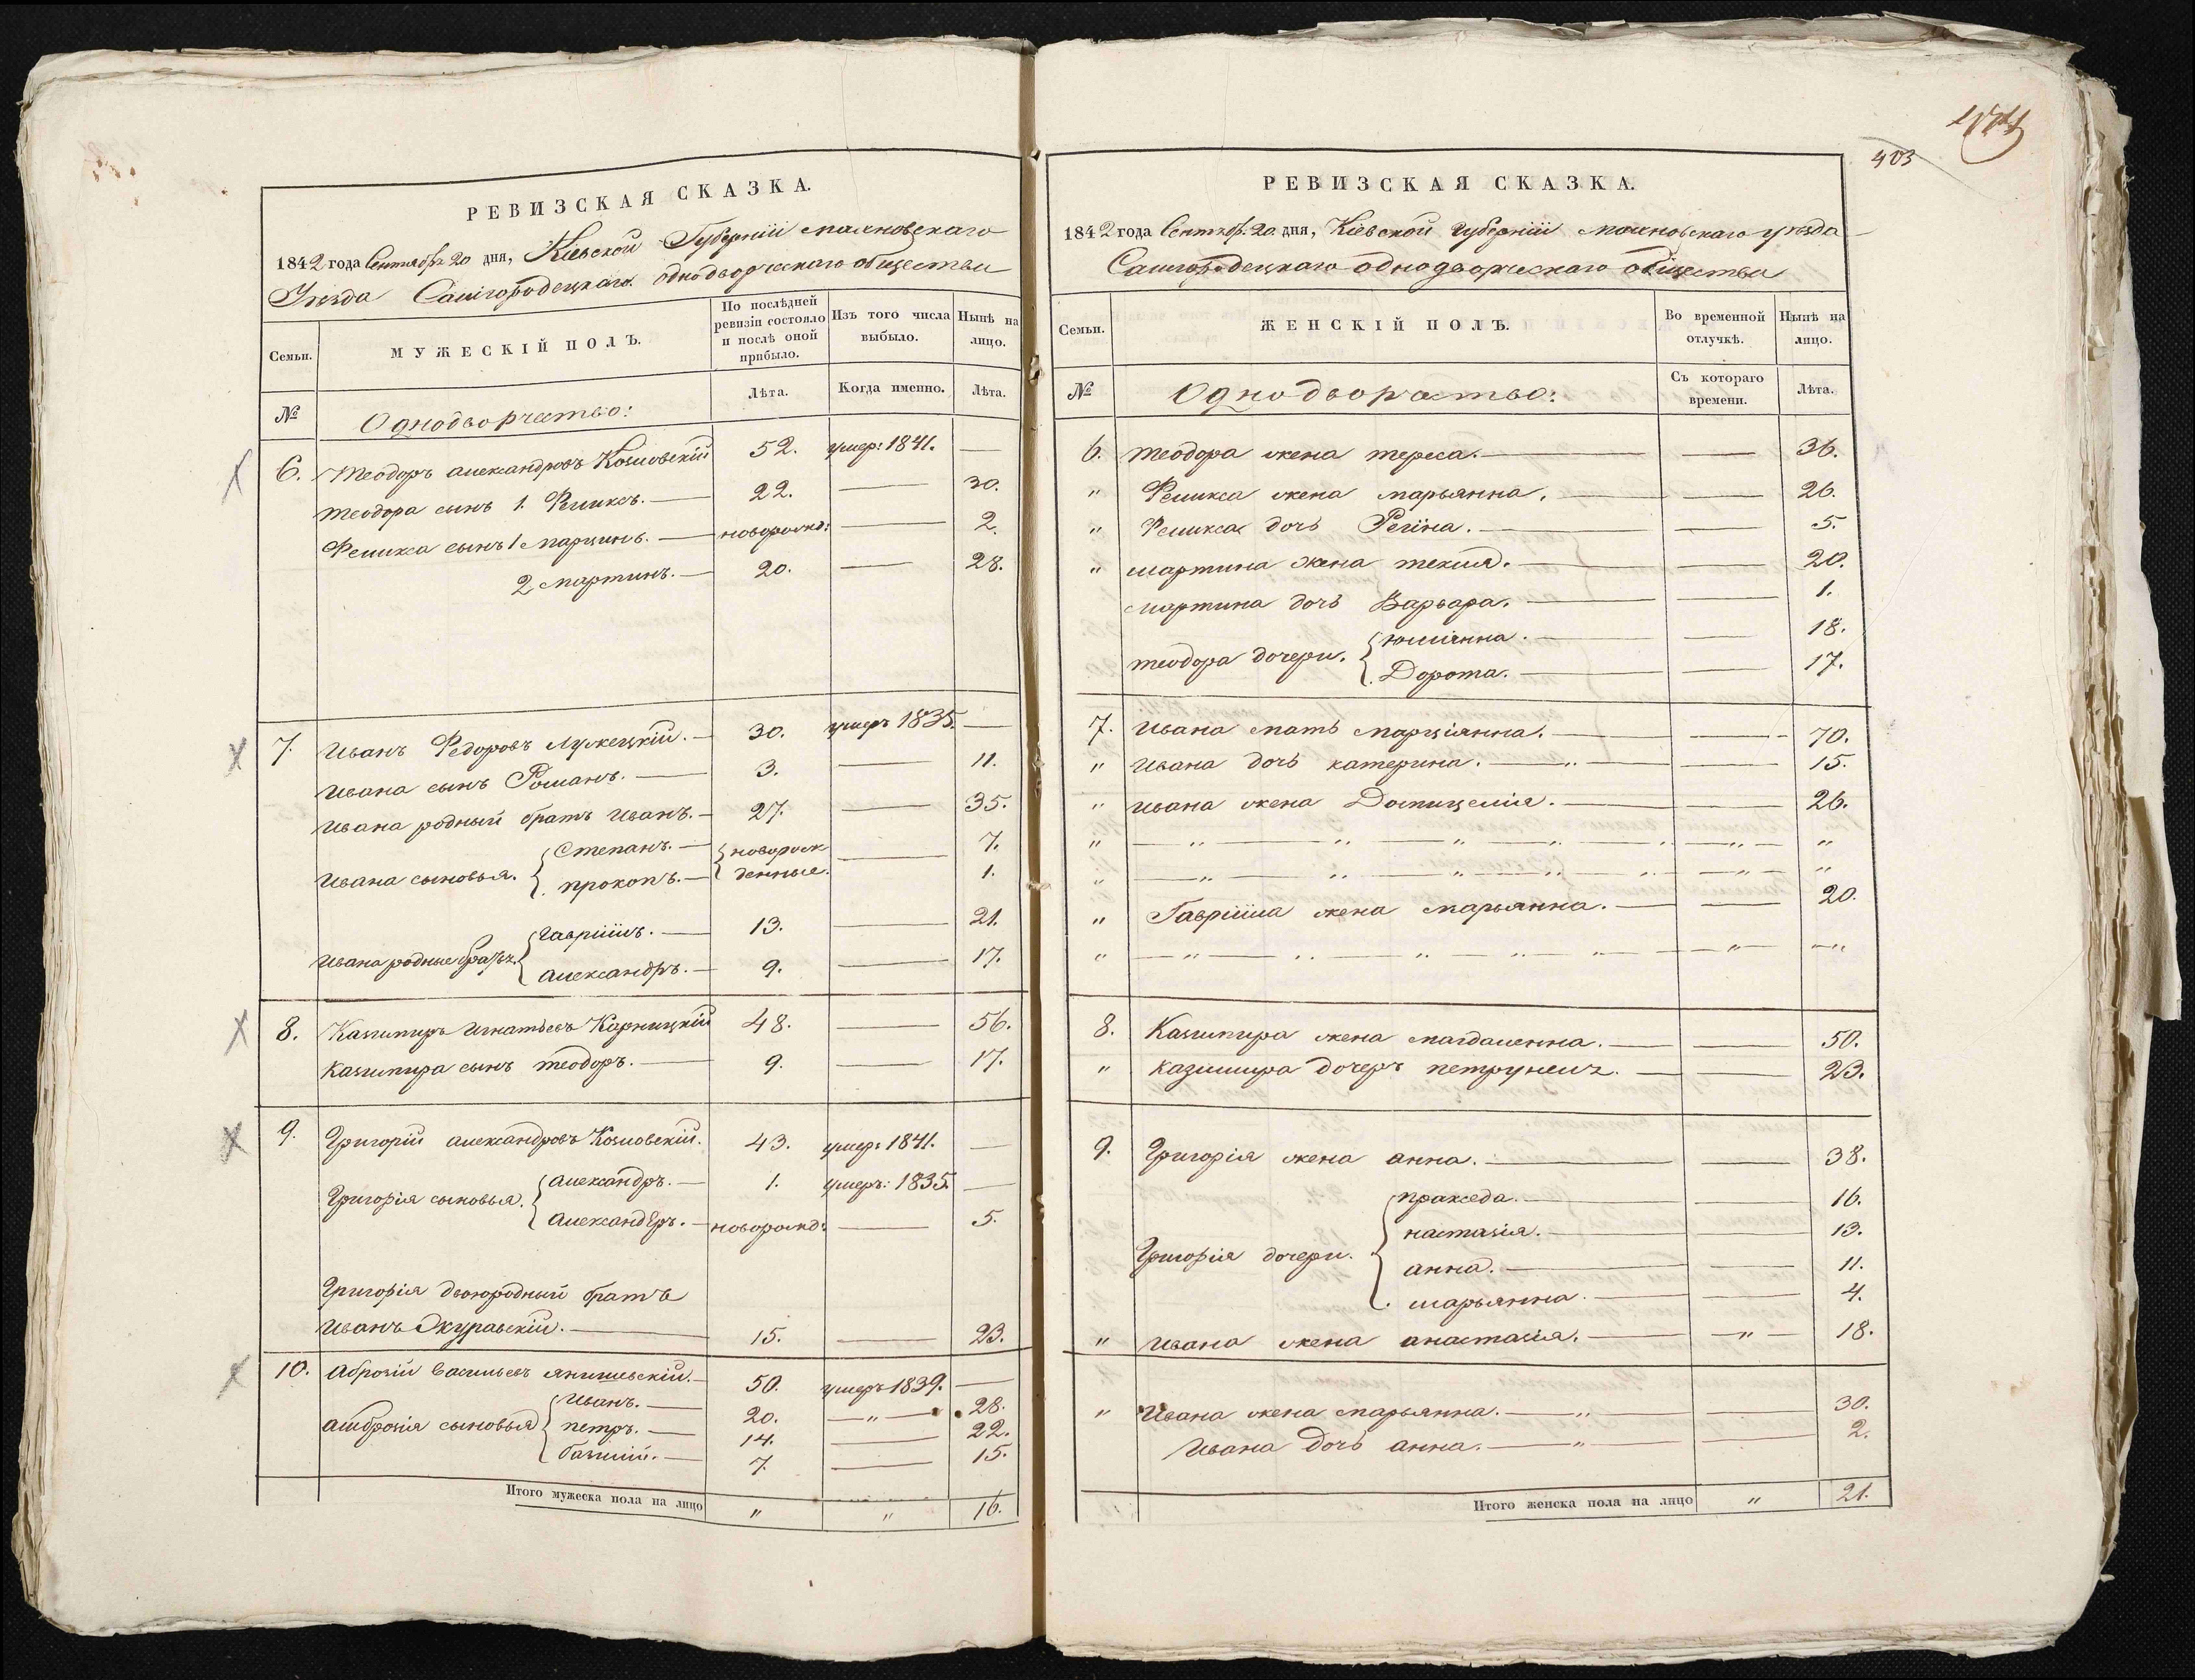 РЕВИЗСКАЯ СКАЗКА.
1842 года Сентября 20 дня, Кіевской Губерніи Махновскаго
Уѣзда Самгородецкаго однодворческаго общества
Семьи. МУЖЕСКІЙ ПОЛЪ. По послѣдней ревизіи состояло и послѣ оной прибыло. Изъ того числа выбыло. Нынѣ на лицо.
№ Однодворчество: Лѣта. Когда именно. Лѣта.
6. Теодоръ Александровъ Козловскій 52. умер: 1841. —
Теодора сынъ 1. Феликсъ. — 22. — 30.
Феликса сынъ 1 Марцинъ. — новорожд: — 2.
2 Мартинъ. — 20. — 28.
7. Иванъ Федоровъ Лужецкій. — 30. умеръ 1835. —
Ивана сынъ Романъ. — 3. — 11.
Ивана родный братъ Иванъ. — 27. — 35.
Ивана сыновья. Степанъ. — новорож — 7.
Прокопъ. — денные. 1.
Ивана родные братья Гавріилъ. — 13. — 21.
Александръ. — 9. — 17.
8. Казимиръ Игнатьевъ Карницкій 48. — 56.
Казимира сынъ Теодоръ. — 9. — 17.
9. Григорій Александровъ Козловскій. 43. умер: 1841. —
Григорія сыновья. Александръ. — 1. умеръ: 1835. —
Александръ. — новорожд: — 5.
Григорія двоюродный братъ
Иванъ Журавскій. — 15. — 23.
10. Аброзій Васильевъ Янишевскій. — 50. умеръ 1839. —
Амброзія сыновья Иванъ. — 20. — " — 28.
Петръ. — 14. — 22.
Базилій. — 7. — 15.
Итого мужеска пола на лицо " " 16.
403
РЕВИЗСКАЯ СКАЗКА.
1842 года Сентяб. 20 дня, Кіевской Губерніи Махновскаго уѣзда
Самгородецкаго однодворческаго общества
Семьи. ЖЕНСКІЙ ПОЛЪ. Во временной отлучкѣ. Нынѣ на лицо.
№ Однодворчество: Съ котораго времени. Лѣта.
6. Теодора жена Тереса. — — 36.
" Феликса жена Марьянна. — — 26.
" Феликса дочь Регина. — — 5.
" Мартина жена Текля. — — 20.
Мартина дочь Варвара. — — 1.
Теодора дочери. Юліанна. — — 18.
Дорота. — — 17.
7. Ивана мать Марціянна. — — 70.
" Ивана дочь Катерина. — " — — 15.
" Ивана жена Домицелія. — — 26.
" — " — " — " — " — " — " — "
" — " — " — " — " — " — " — "
" Гавріила жена Марьянна. — — 20.
" — " — " — " — " — " — " — "
8. Казимира жена Магдаленна. — — 50.
" Казимира дочеръ Петрунеля. — — 23.
9. Григорія жена Анна. — — 38.
Григорія дочери. Пракседа. — — 16.
Настазія. — — 13.
Анна. — — 11.
Марьянна. — — 4.
" Ивана жена Анастазія. — — " — 18.
" Ивана жена Марьянна. — " — 30.
Ивана дочь Анна. — " — 2.
Итого женска пола на лицо " 21.